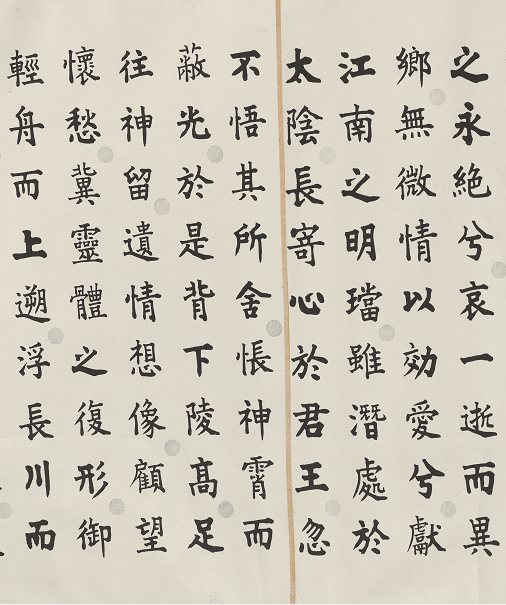 之永絶兮哀一逝而異
鄉無微情以効愛兮獻
江南之明璫雖潛處於
太陰長寄心於君王忽
不悟其所舍悵神霄而
蔽光於是背下陵高足
往神留遺情想像顧望
懷愁冀靈體之復形御
輕舟而上遡浮長川而